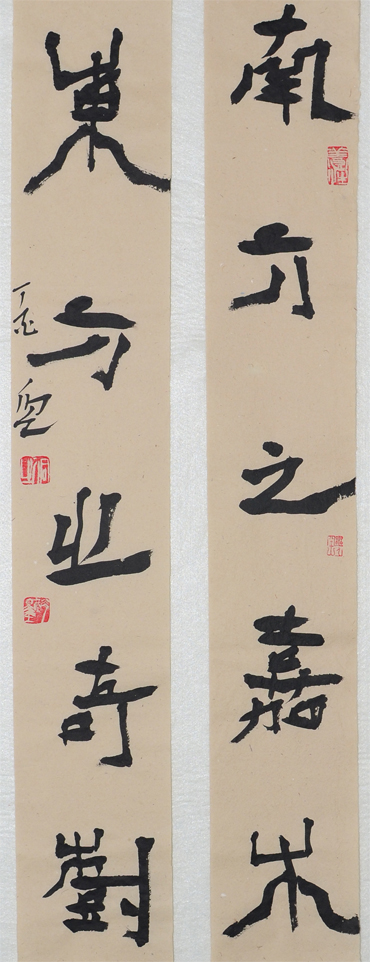 南方之嘉木
東方之奇樹